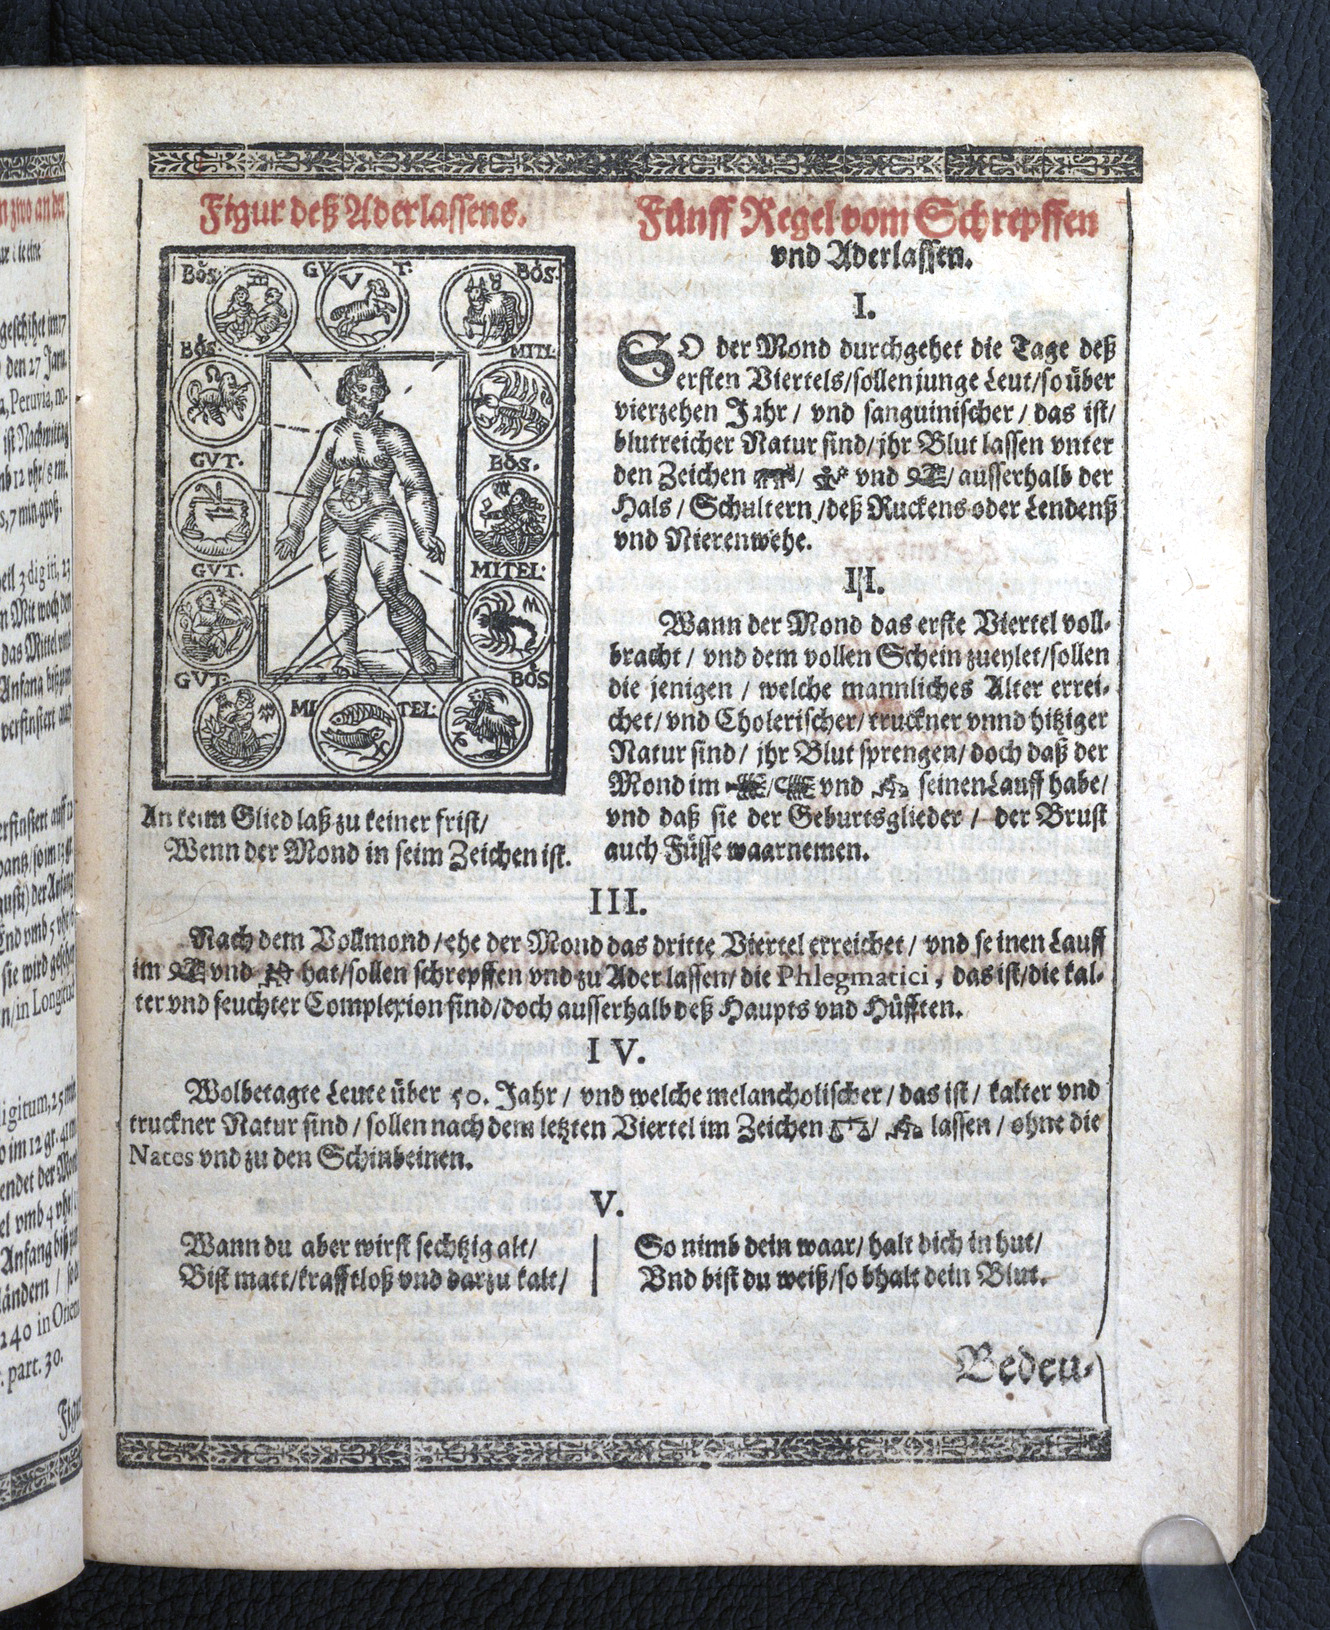 Figur deß Aderlassens.
BŏS.
GV T.
BŏS.
BŏS
MITL
GVT.
BŏS.
GVT.
MITEL.
GVT.
BŏS
MI TEL.
An keim Glied laß zu keiner frist/
Wenn der Mond in seim Zeichen ist.
Fünff Regel vom Schrepffen
vnd Aderlassen.
I.
SO der Mond durchgehet die Tage deß
ersten Viertels/sollen junge Leut/so über
vierzehen Jahr / vnd sanguinischer / das ist/
blutreicher Natur sind/jhr Blut lassen vnter
den Zeichen ♈/ ♒ vnd ♐/ ausserhalb der
Hals / Schultern /deß Ruckens oder Lendenß
vnd Nierenwehe.
II.
Wann der Mond das erste Viertel voll-
bracht / vnd dem vollen Schein zueylet/sollen
die jenigen / welche mannliches Alter errei-
chet/vnd Cholerischer/truckner vnnd hitziger
Natur sind/ jhr Blut sprengen/ doch daß der
Mond im ♋/♏ vnd ♓ seinen Lauff habe/
vnd daß sie der Geburtsglieder / der Brust
auch Füsse waarnemen.
III.
Nach dem Vollmond/ehe der Mond das dritte Viertel erreichet/ vnd seinen Lauff
im ♐ vnd ♈ hat/sollen schrepffen vnd zu Ader lassen/ die Phlegmatici, das ist/die kal-
ter vnd feuchter Complexion sind/doch ausserhalb deß Haupts vnd Hüfften.
IV.
Wolbetagte Leute über 50. Jahr / vnd welche melancholischer/das ist/ kalter vnd
truckner Natur sind / sollen nach dem letzten Viertel im Zeichen ♎/ ♓ lassen / ohne die
Nates vnd zu den Schinbeinen.
V.
Wann du aber wirst sechtzig alt/
Bist matt/krafftloß vnd darzu kalt/
So nimb dein waar/ halt dich in hut/
Vnd bist du weiß/so bhalt dein Blut.
Bedeu-